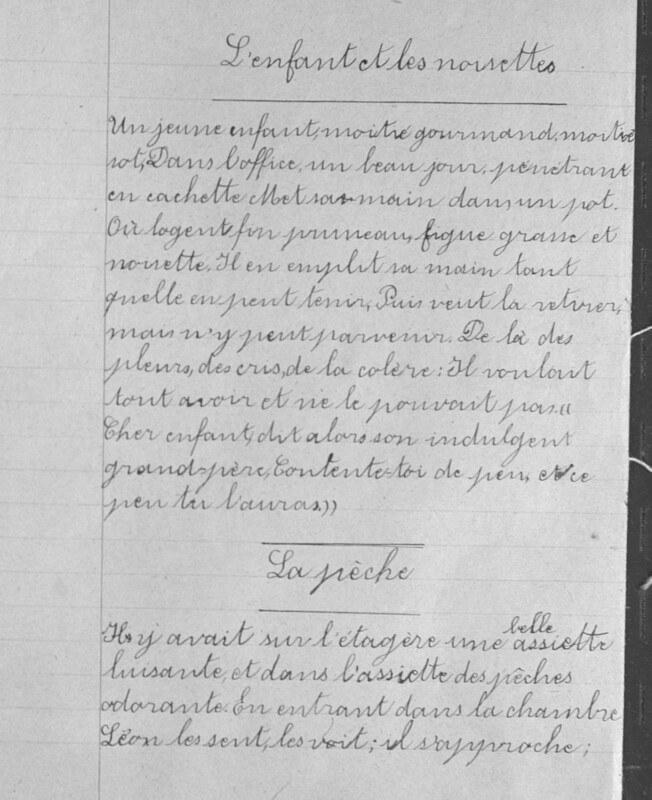 L'enfant et les noisettes
Un jeune enfant, moitié gourmand, moitié
sot, Dans l'office, un beau jour, pénétrant
en cachette Met sa main dans un pot.
Où logent fin pruneau, figue grasse et
noisette. Il en emplit sa main tant
quelle en peut tenir, Puis veut la retirer,
mais n'y peut parvenir. De là des
pleurs, des cris, de la colère : Il voulait
tout avoir et ne le pouvait pas. ((
Cher enfant, dit alors son indulgent
grand-père, Contente-toi de peu, et ce
peu tu l'auras. ))
La pêche
Il y avait sur l'étagère une belle assiette
luisante, et dans l'assiette des pêches
odorante. En entrant dans la chambre
Léon les sent, les voit ; il s'approche ;